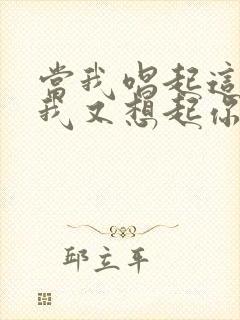 當我唱起這
我又想起你
邱立平